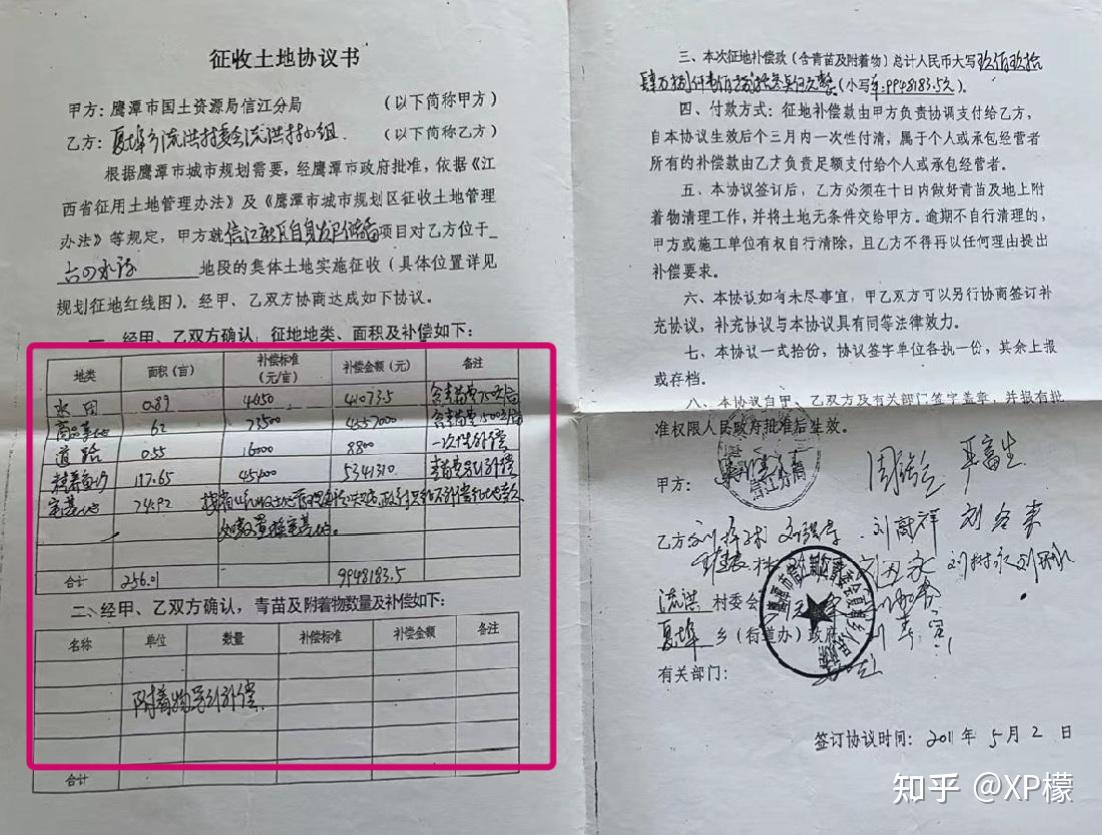 征收土地协议书
甲方：鹰潭市国土资源局信江分局 （以下简称甲方）
乙方：夏埠乡流洪村委会流洪村小组. （以下简称乙方）
根据鹰潭市城市规划需要，经鹰潭市政府批准，依据《江
西省征用土地管理办法》及《鹰潭市城市规划区征收土地管理
办法》等规定，甲方就信江新区自身发展储备项目对乙方位于
地段的集体土地实施征收（具体位置详见
规划征地红线图）。经甲、乙双方协商达成如下协议。
一、经甲、乙双方确认，征地地类、面积及补偿如下：
地类 面积（亩） 补偿标准（元/亩） 补偿金额（元） 备注
水田 0.89 4
商品菜地 62 73500 4557000
道路 0.55 16000 8800 一次性补偿
精养鱼沟 117.65 45400 5341310
宅基地 74.92
合计 256.01 9948183.5
二、经甲、乙双方确认，青苗及附着物数量及补偿如下：
名称 单位 数量 补偿标准 补偿金额 备注
附着物另行补偿.
合计
三、本次征地补偿款（含青苗及附着物）总计人民币大写玖佰玖拾
肆万捌仟壹佰捌拾叁元伍角整（小写￥:9948183.5元）.
四、付款方式：征地补偿款由甲方负责协调支付给乙方，
自本协议生效后个三月内一次性付清，属于个人或承包经营者
所有的补偿款由乙方负责足额支付给个人或承包经营者。
五、本协议签订后，乙方必须在十日内做好青苗及地上附
着物清理工作，并将土地无条件交给甲方。逾期不自行清理的，
甲方或施工单位有权自行清除，且乙方不得再以任何理由提出
补偿要求。
六、本协议如尚未尽事宜，甲乙双方可以另行协商签订补
充协议，补充协议与本协议具有同等法律效力。
七、本协议一式拾份，协议签字单位各执一份，其余上报
或存档。
八、本协议自甲、乙双方及有关部门签字盖章，并报有批
准权限人民政府批准后生效。
甲方：
信江分局
乙方
刘高祥
刘树永
流洪 村委会
夏埠 乡（街道办）政府
有关部门：
签订协议时间：2011年5月2日
知乎 @XP檬